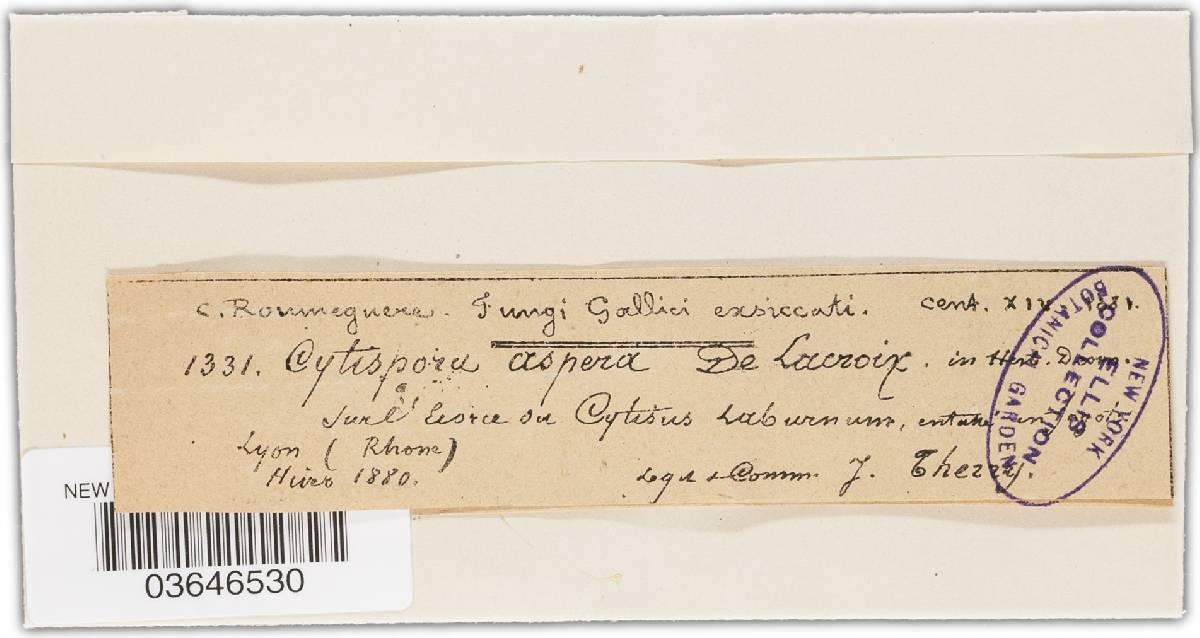 C. Roumeguere. Fungi Gallici exsiccati. Cent. XIV. 1881.
1331. Cytispora aspera De Lacroix. in Herb.
Sur l'Ecorce du Cytisus Laburnum,
Lyon (Rhone)
Hiver 1880. Legit & Comm. J. Therry.
NEW YORK
BOTANICAL GARDEN
ELLIS
COLLECTION
NEW
03646530